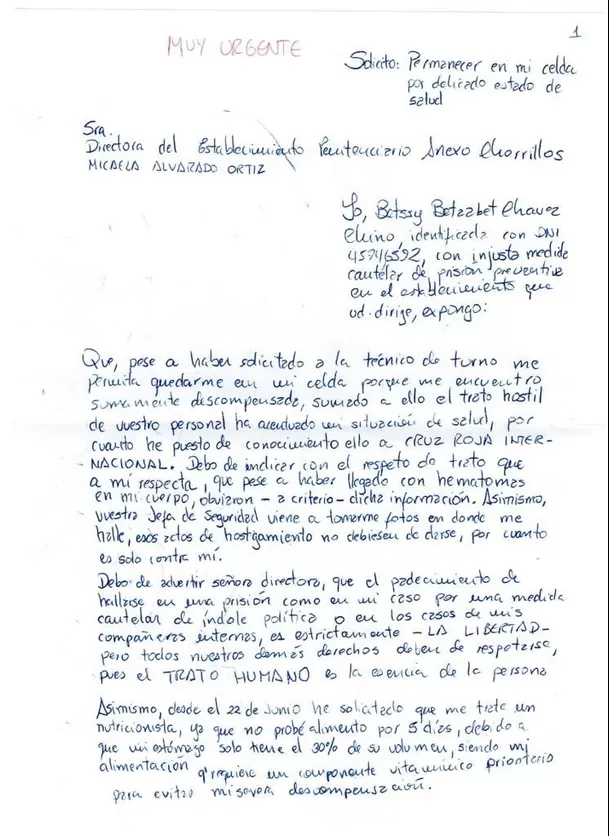 1
MUY URGENTE
Solicito: Permanecer en mi celda
por delicado estado de
salud
Sra.
Directora del Establecimiento Penitenciario Anexo Chorrillos
MICAELA ALVARADO ORTIZ
Yo, Betssy Betzabet Chavez
Chino, identificada con DNI
45746592, con injusta medida
cautelar de prisión preventiva
en el establecimiento que
ud. dirige, expongo:
Que, pese a haber solicitado a la técnico de turno me
permita quedarme en mi celda porque me encuentro
sumamente descompensada, sumado a ello el trato hostil
de vuestro personal ha acentuado mi situación de salud, por
cuanto he puesto de conocimiento ello a CRUZ ROJA INTER-
-NACIONAL. Debo de indicar con el respeto do trato que
a mí respecta, que pese a haber llegado con hematomas
en mi cuerpo, obviaron - a criterio - dicha información. Asimismo,
vuestra Jefa de Seguridad viene a tomarme fotos en donde me
halle, esos actos de hostigamiento no debiesen de darse, por cuanto
es solo contra mí.
Debo de advertir señora directora, que el padecimiento de
hallarse en una prisión como en mi caso por una medida
cautelar de índole política o en los casos de mis
compañeras internas, es estrictamente - LA LIBERTAD -
pero todos nuestros demás derechos deben de respetarse,
pues el TRATO HUMANO es la esencia de la persona
Asimismo, desde el 22 de Junio he solicitado que me trate un
nutricionista, ya que no probé alimento por 5 días, debido a
que mi estómago solo tiene el 30% de su volumen, siendo mi
alimentación q' requiere un componente vitamínico prioritario
para evitar mi severa descompensación.